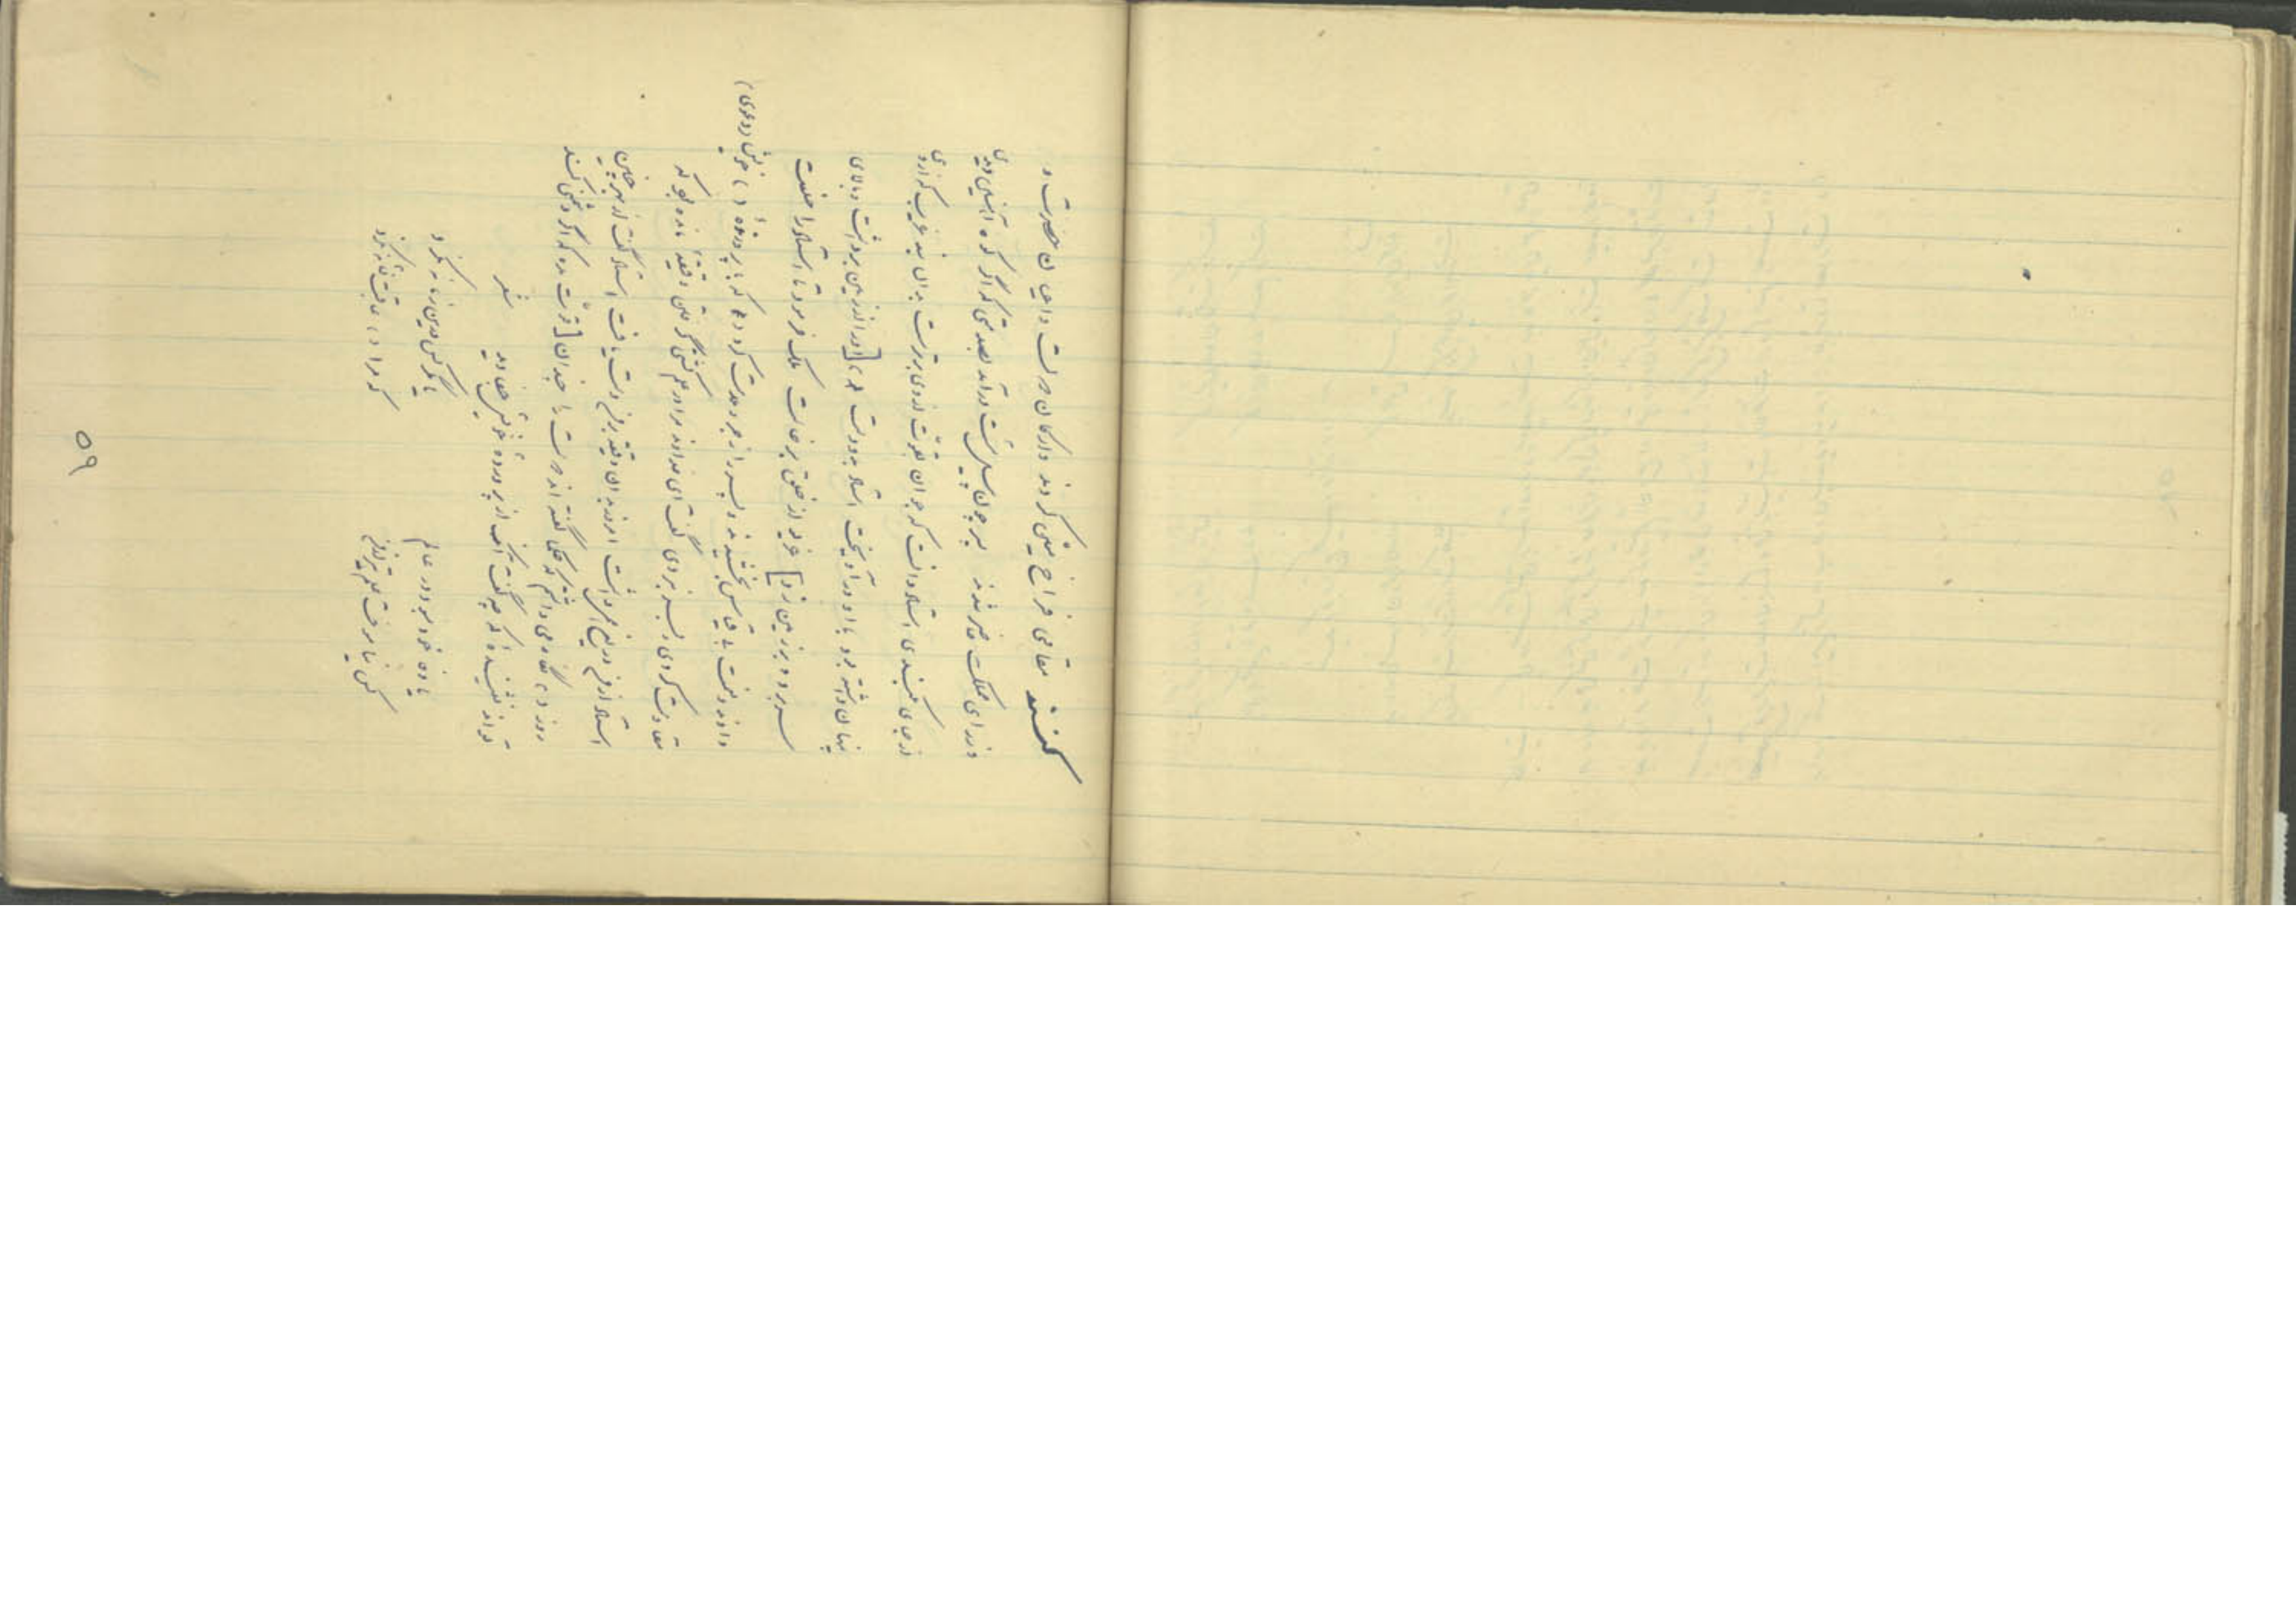 کنند مقامی فراخ معین کردند و ارکان دولت و اعیان حضرت و
وزرای مملکت حاضر شدند پسر چون پیل مست درآمد بصدمتی که اگر کوه آهنین بودی
از جای بکندی استاد دانست که جوان بقوت از وی برترست بدان بند غریب که از وی
پنهان داشته بود با او درآویخت استاد بدو دست [او را از زمین برداشت و بالای
سر برد و بر زمین زد] غریو از خلق برخاست ملک فرمود تا استاد را خلعت
دادند و نعمت بی قیاس بخشیدند و پسر را زجر و ملامت کرد که با پرورندهٔ خویش دعوی
مقاومت کردی و بسر نبردی گفت ای خداوند مرا در علم کشتی گرفتن دقیقهٔ مانده بود که
استاد از من دریغ همی داشت امروز بدان دقیقه بر من دست یافت استاد گفت از بهر چنین
روزی نگاه می داشتم که حکما گفته اند دوست را چندان قوت مده که اگر دشمنی کند
تواند نشنیدهٔ که چه گفت آنکه از پروردهٔ خویش جفا دید
شعر
یا وفا خود نبود در عالم
یا مگر کس درین زمانه نکرد
کس نیاموخت علم تیر از من
که مرا عاقبت نشانه نکرد
۵۹